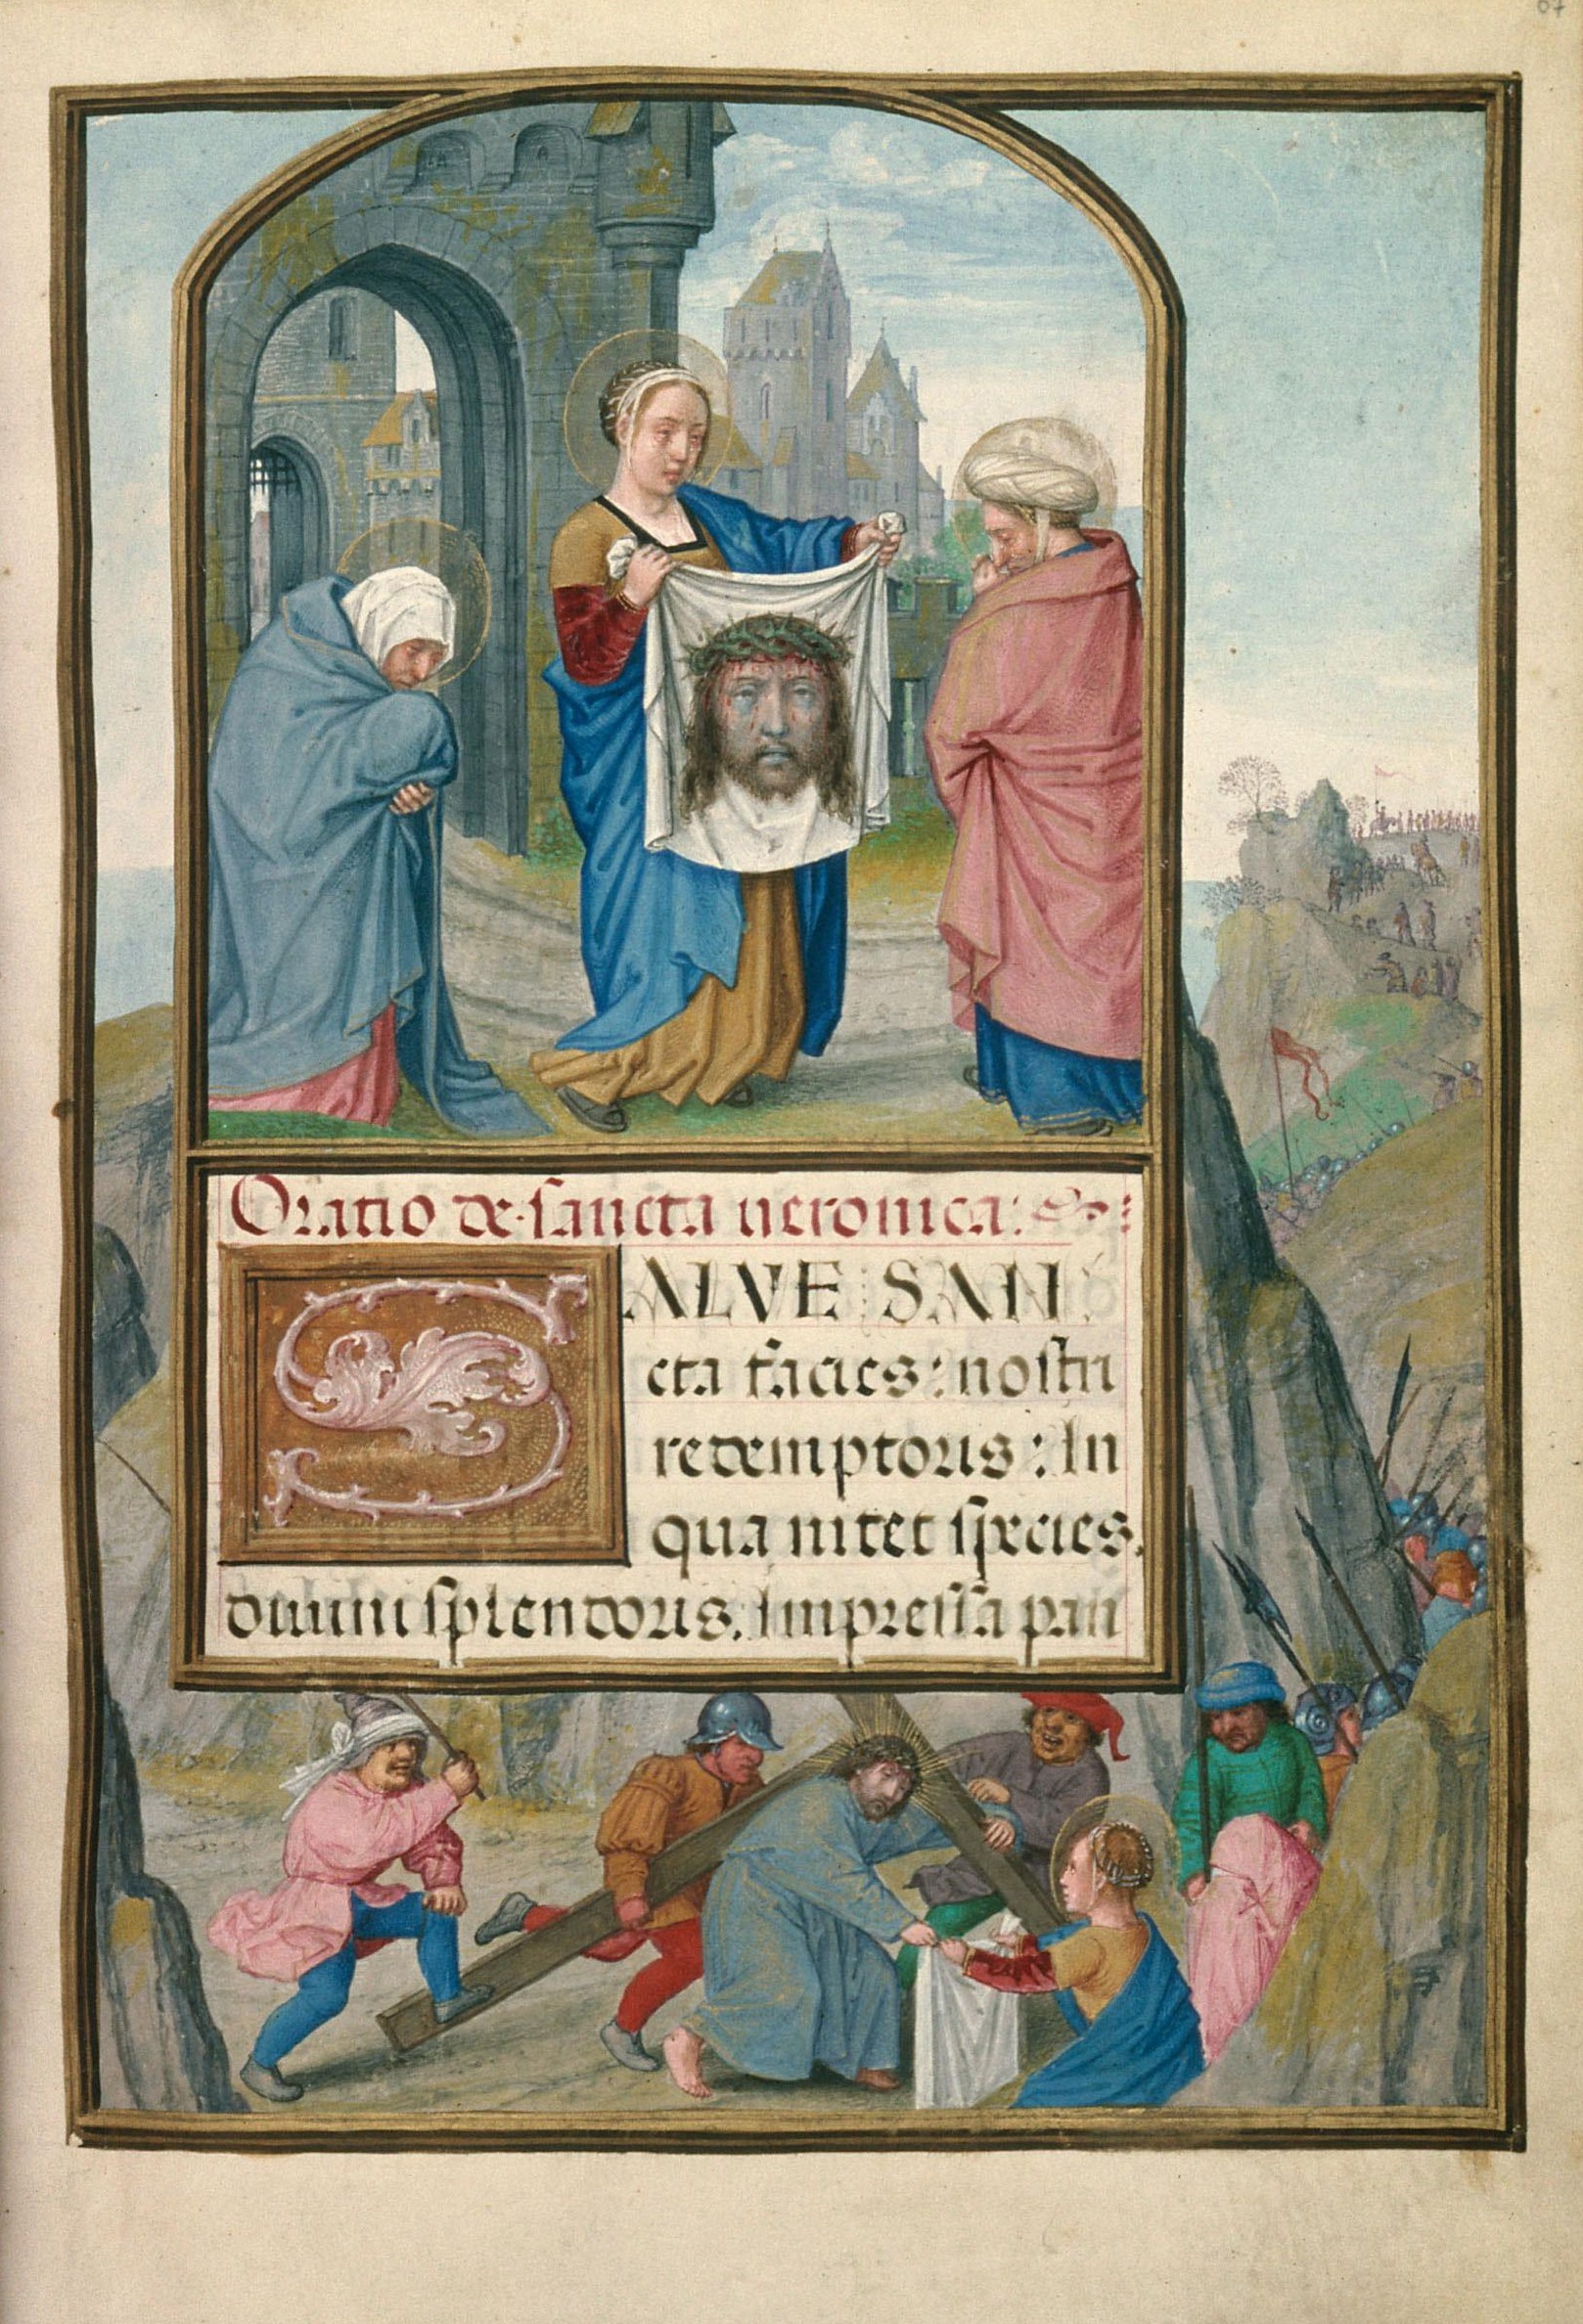 67
Oratio de sancta veronica:
SALVE SAN
cta facies: nostri
redemptoris: In
qua nitet species
divini splendoris. Impressa pan